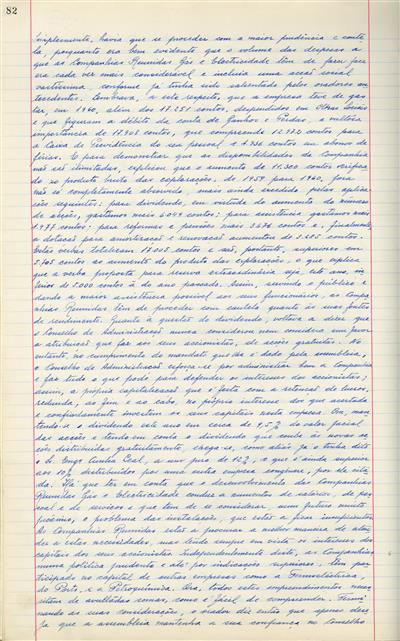 82
simplesmente, havia que se proceder com a maior prudência e caute
la, porquanto era bem evidente que o volume das despesas a
que as Companhias Reunidas Gás e Electricidade têm de fazer face
era cada vez mais considerável e incluia uma acção social
vastíssima, conforme já tinha sido salientado pelos oradores an
tecedentes. Lembrava, a este respeito, que a empresa teve de gas
tar, em 1960, além dos 17.251 contos, despendidos em Obras Sociais
e que figuram a débito da conta de Ganhos e Perdas, a mesma
importância de 17.908 contos, que compreende 12.972 contos para
a Caixa de Previdência do seu pessoal e 4.936 contos em abonos de
férias. E para demonstrar que as disponibilidades da Companhia
não são ilimitadas, explicou que o aumento de 14.300 contos verifica
do no produto bruto das explorações, de 1959 para 1960, fora
não só completamente absorvido, mas ainda excedido pelas aplica
ções seguintes: para dividendo, em virtude do aumento do número
de acções, gastámos mais 6.049 contos; para assistência gastámos mais
1.977 contos; para reformas e pensões mais 3.676 contos e, finalmente,
a dotação para amortização e renovação aumentou de
Estas verbas totalizam contos e são, portanto, superiores em
contos ao aumento do produto das explorações, o que explica
que a verba proposta para reserva extraordinária seja, este ano, in
ferior de 5.000 contos à do ano passado. Assim, servindo o público e
dando a maior assistência possível aos seus funcionários, as Compa
nhias Reunidas têm de proceder com cautela quanto às suas fontes
de rendimento. Quanto à questão do dividendo, voltava a dizer que
o Conselho de Administração nunca considerou nem considera um favor
a atribuição que faz aos seus accionistas, de acções gratuitas. No
entanto, no cumprimento do mandato que lhe é dado pela assembleia,
o Conselho de Administração esforça-se por administrar bem a Companhia
e faz tudo o que pode para defender os interesses dos accionistas;
assim, a própria capitalização que é feita com a retenção de lucros,
redunda, ao fim e ao cabo, no próprio interesse dos que acertada
e confiadamente investem os seus capitais nesta empresa. Ora, man
tendo-se o dividendo este ano em cerca de 9,5% do valor facial
das acções e tendo em conta o dividendo que coube às novas ac
ções distribuídas gratuitamente, chega-se, como aliás já o tinha dito
o Sr. Engº Cunha Leal, a um juro de 12%, o que é ainda superior
aos 10% distribuídos por uma outra empresa congénere, por ele cita
da. Há que ter em conta que o desenvolvimento das Companhias
Reunidas Gás e Electricidade conduz a aumentos de salários, de pes
soal e de serviços e que tem de se considerar, num futuro muito
próximo, o problema das instalações, que estão a ficar insuficientes.
As Companhias Reunidas estão a procurar a melhor maneira de aten
der a estas necessidades, mas tendo sempre em vista os interesses dos
capitais dos seus accionistas. Independentemente disto, as Companhias,
numa política prudente e até por indicações superiores, têm par
ticipado no capital de outras empresas como a Termoeléctrica,
do Porto, e a Petroquímica. Ora, todos estes empreendimentos neces
sitam de avultadas somas, como é fácil de compreender. Termi
nando as suas considerações, o orador diz então que apenas dese
ja que a assembleia mantenha a sua confiança no Conselho